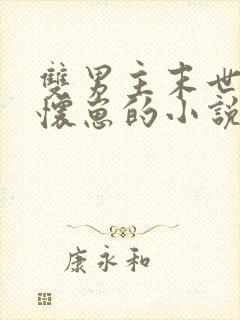 雙男主末世
懷崽的小說
康永和